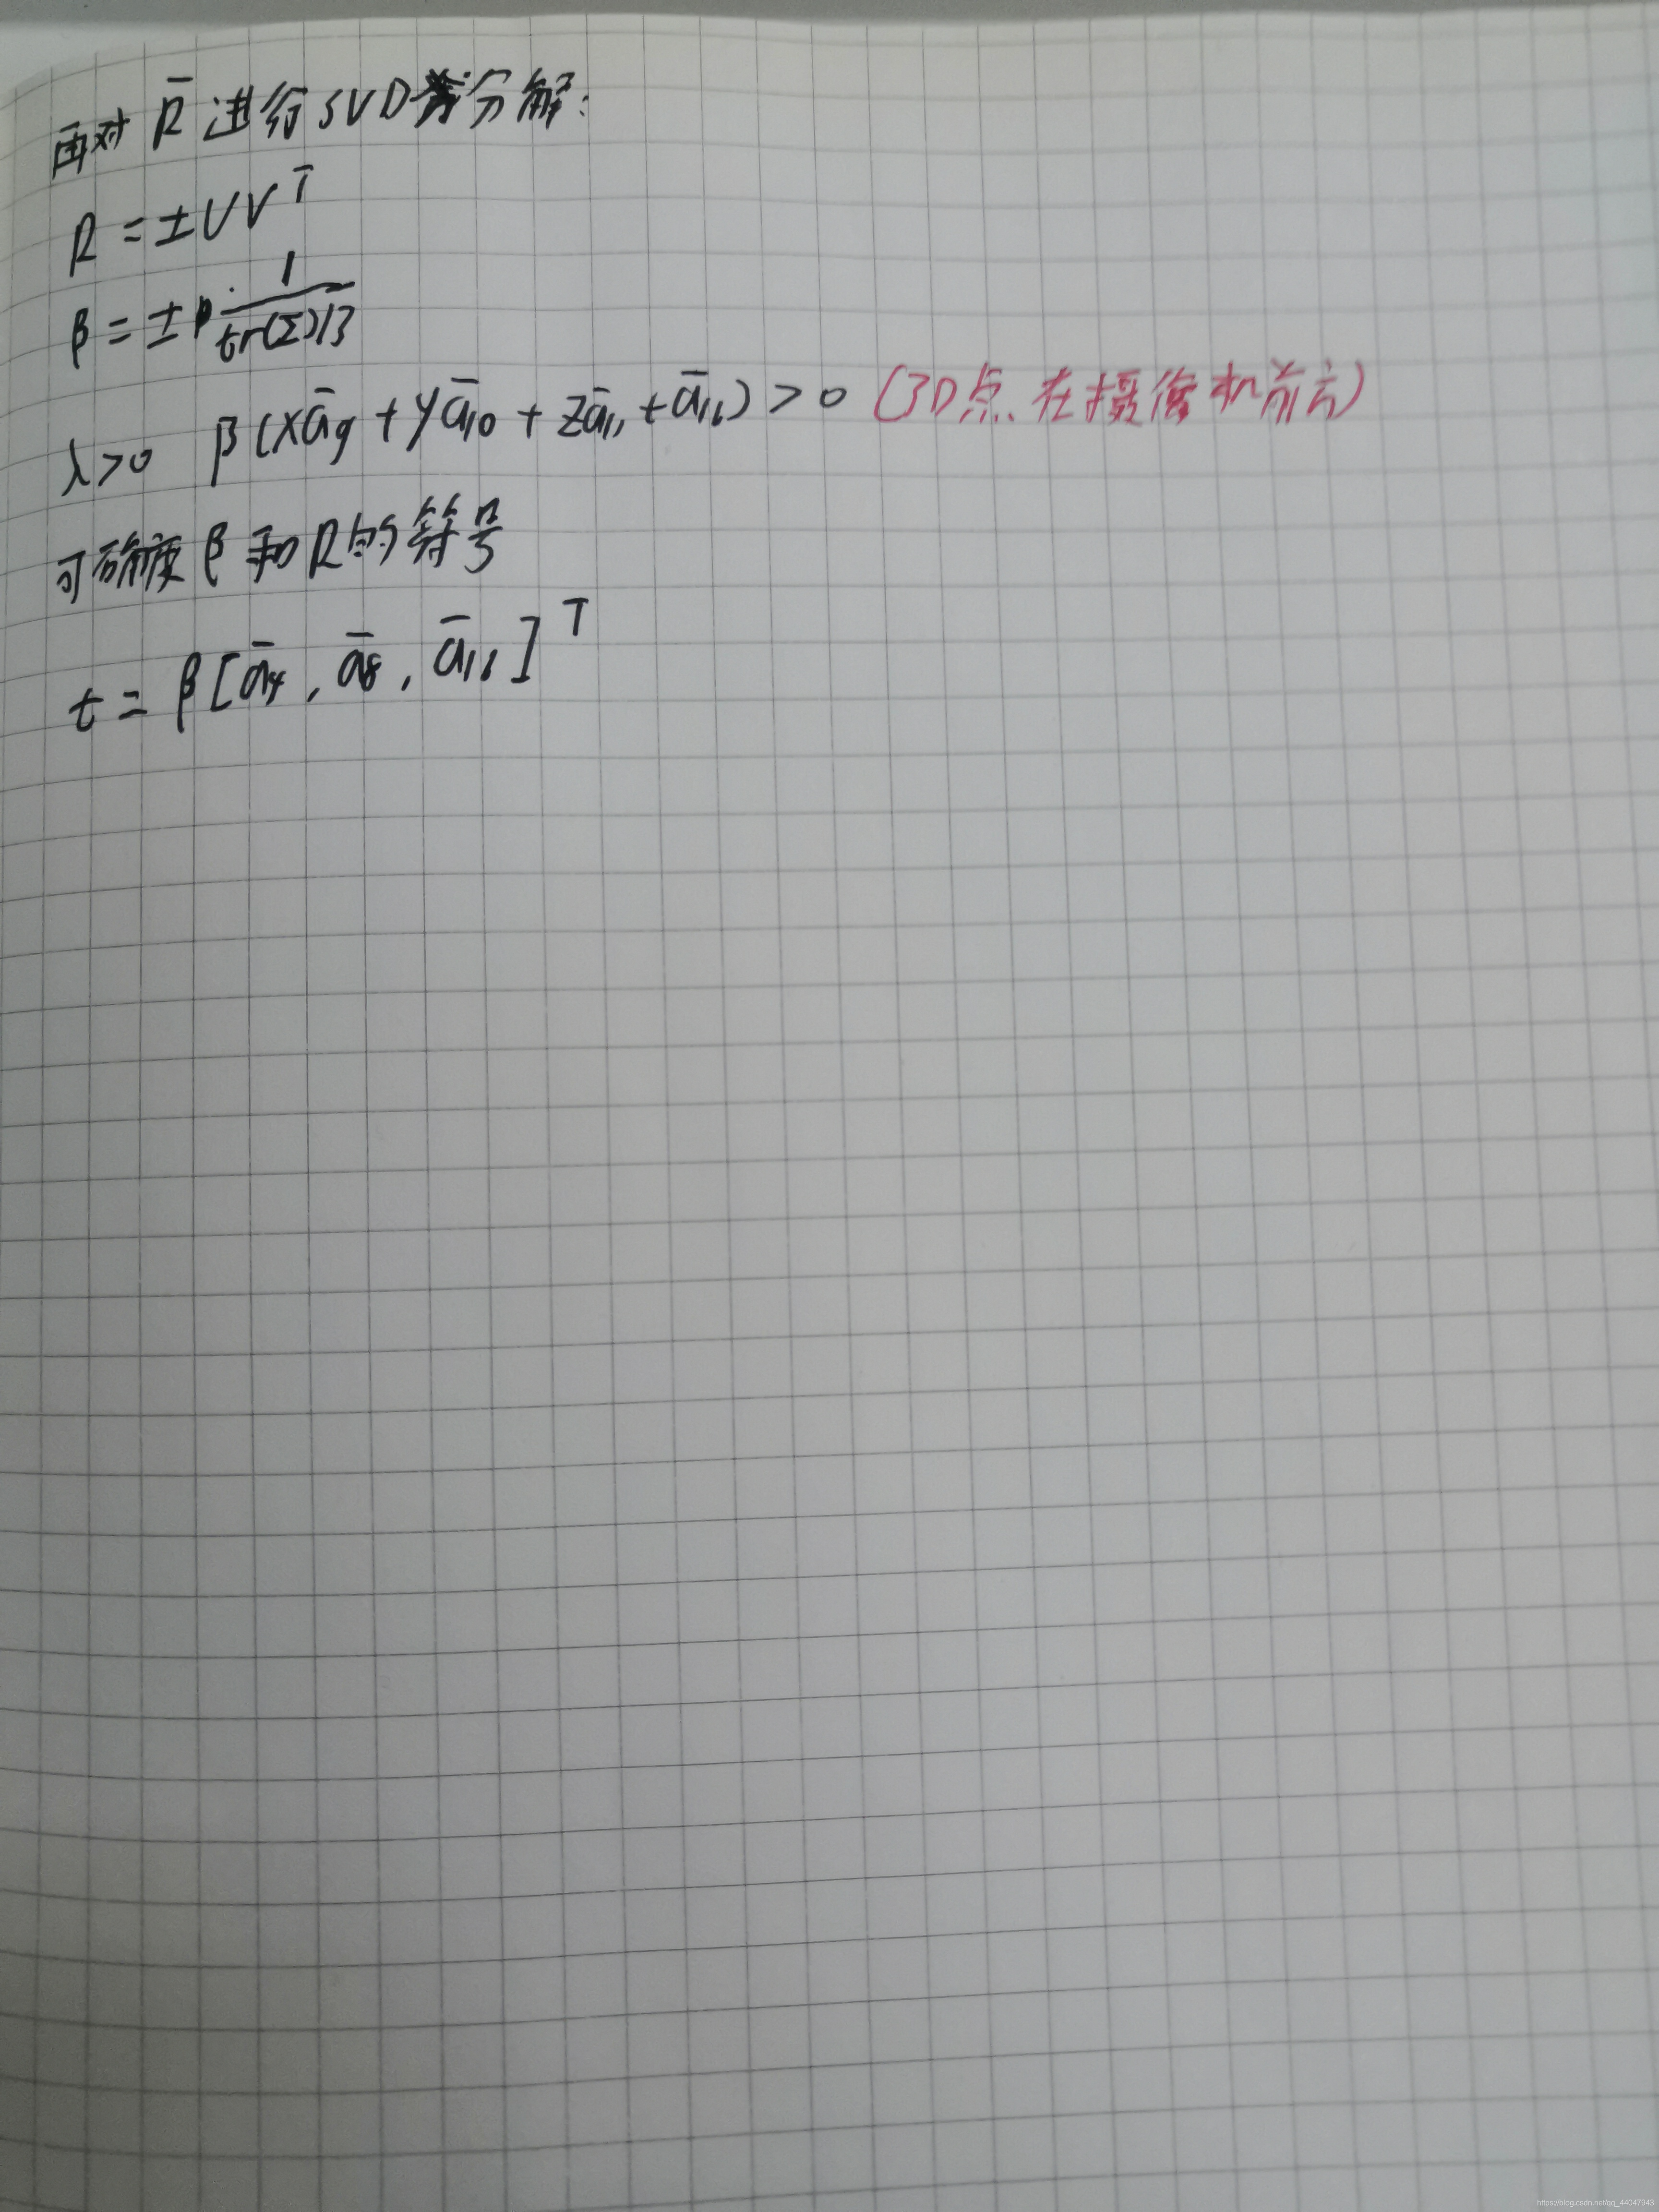 再对 R̄ 进行SVD分解:
R = ±UVᵀ
β = ± 1/(tr(Σ)/3)
λ>0 β(xā₉ + yā₁₀ + zā₁₁ + ā₁₂) > 0 (3D点在摄像机前方)
可确定 β 和 R 的符号
t = β[ā₄, ā₈, ā₁₂]ᵀ
https://blog.csdn.net/qq_44047943